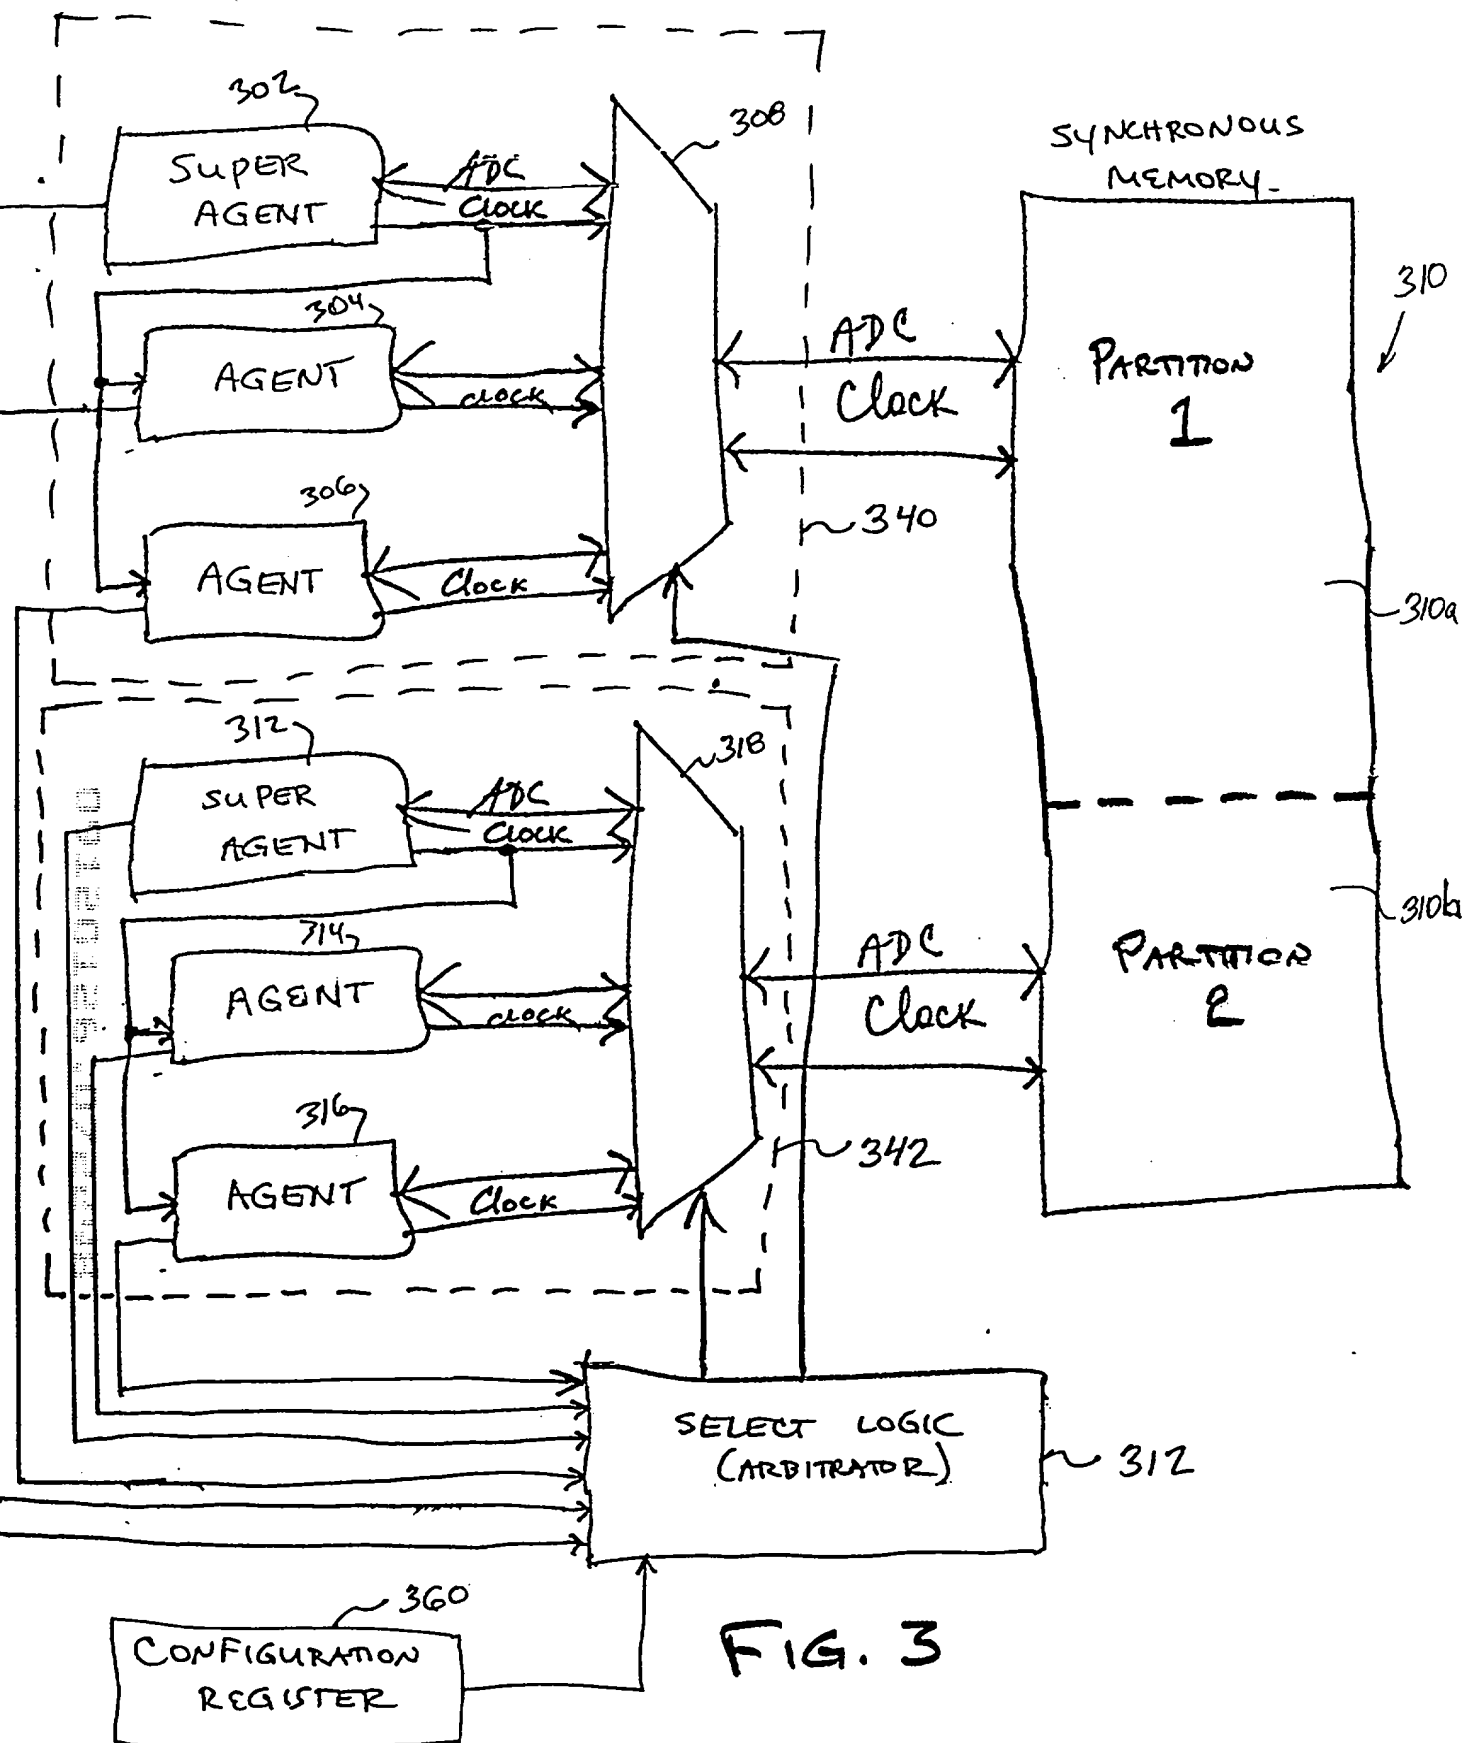 302
SUPER
AGENT
ADC
Clock
308
SYNCHRONOUS
MEMORY
310
304
AGENT
Clock
ADC
Clock
PARTITION
1
306
AGENT
Clock
340
310a
312
SUPER
AGENT
ADC
Clock
318
314
AGENT
Clock
ADC
Clock
PARTITION
2
310b
316
AGENT
Clock
342
SELECT LOGIC
(ARBITRATOR)
312
360
CONFIGURATION
REGISTER
FIG. 3